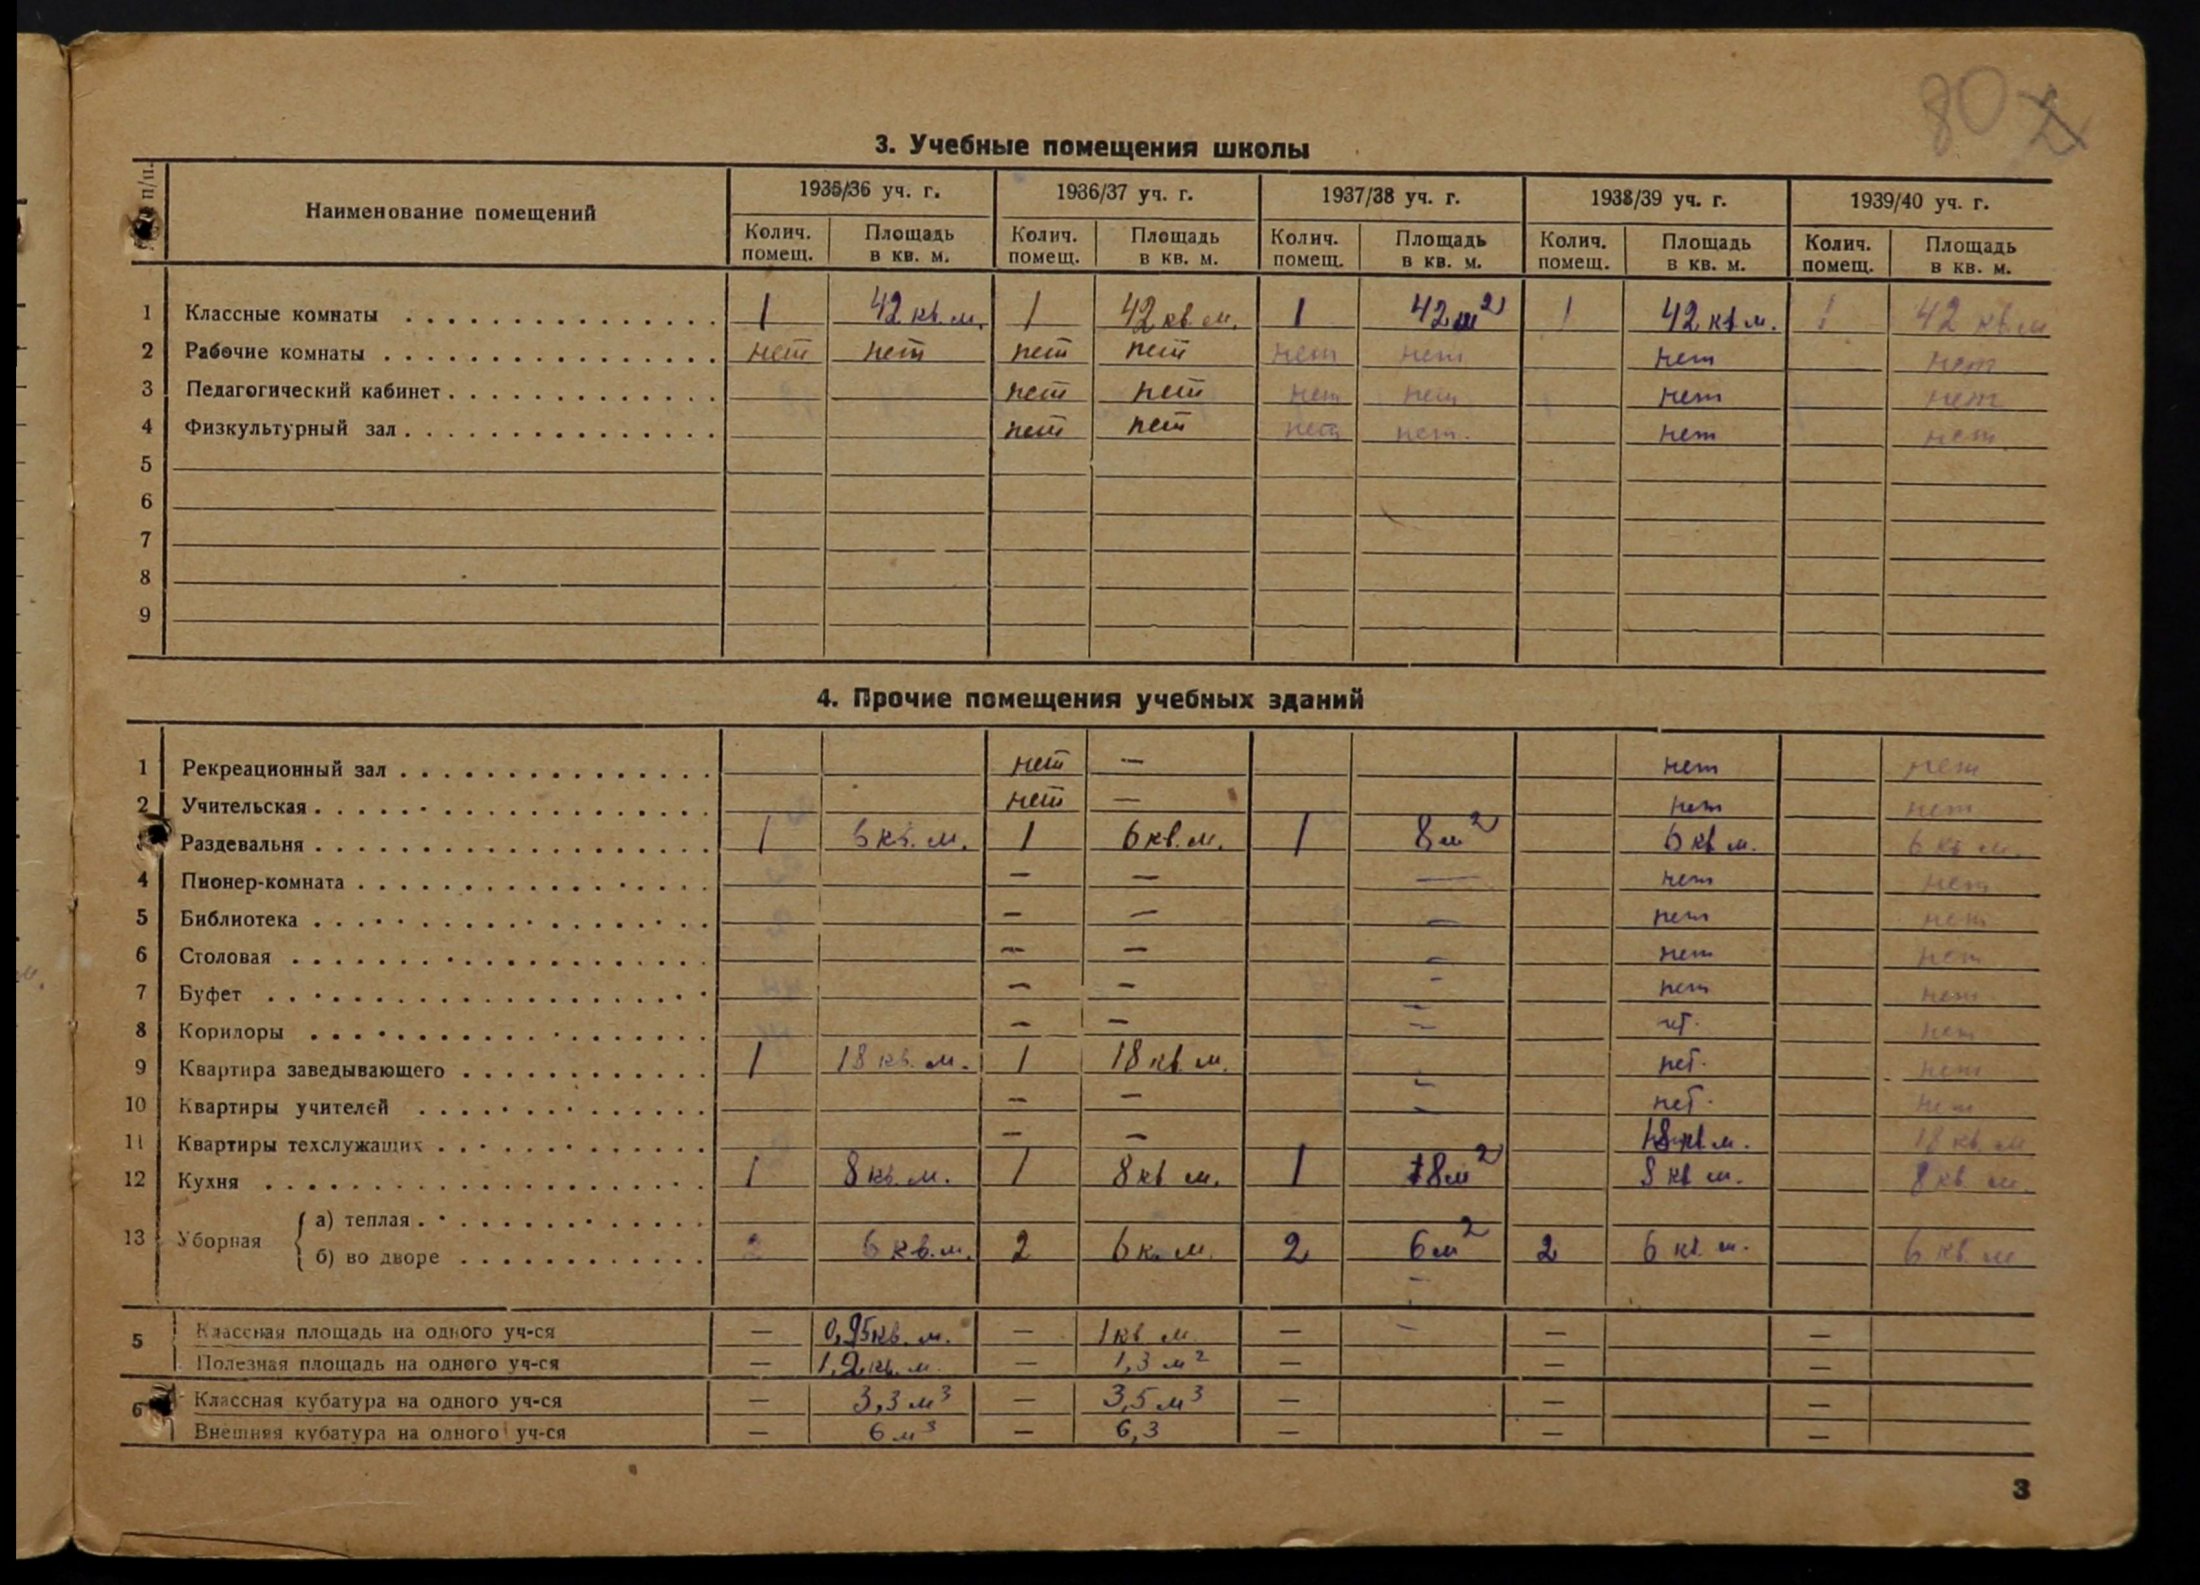 80
3. Учебные помещения школы
п/п. Наименование помещений 1935/36 уч. г. 1936/37 уч. г. 1937/38 уч. г. 1938/39 уч. г. 1939/40 уч. г.
Колич. Площадь Колич. Площадь Колич. Площадь Колич. Площадь Колич. Площадь
помещ. в кв. м. помещ. в кв. м. помещ. в кв. м. помещ. в кв. м. помещ. в кв. м.
1 Классные комнаты 1 42 кв. м. 1 42 кв м. 1 42 м² 1 42 кв м. 1 42 кв м
2 Рабочие комнаты нет нет нет нет нет нет нет нет
3 Педагогический кабинет нет нет нет нет нет нет
4 Физкультурный зал нет нет нет нет. нет нет
5
6
7
8
9
4. Прочие помещения учебных зданий
1 Рекреационный зал нет — нет нет
2 Учительская нет — нет нет
Раздевальня 1 6 кв. м. 1 6 кв. м. 1 8 м² 6 кв м. 6 кв м.
4 Пионер-комната — — — нет нет
5 Библиотека — — — нет нет
6 Столовая — — — нет нет
7 Буфет — — — нет нет
8 Коридоры — — — нет. нет
9 Квартира заведывающего 1 18 кв. м. 1 18 кв м. — нет. нет
10 Квартиры учителей — — — нет. нет
11 Квартиры техслужащих — — 18 кв м. 18 кв. м
12 Кухня 1 8 кв. м. 1 8 кв м. 1 8 м² 8 кв м. 8 кв м.
13 Уборная а) теплая
б) во дворе 2 6 кв. м. 2 6 к. м. 2 6 м² 2 6 кв. м. 6 кв м
5 Классная площадь на одного уч-ся — 0,95 кв. м. — 1 кв м — — — —
Полезная площадь на одного уч-ся — 1,2 кв. м. — 1,3 м² — — —
6 Классная кубатура на одного уч-ся — 3,3 м³ — 3,5 м³ — — —
Внешняя кубатура на одного уч-ся — 6 м³ — 6,3 — — —
3